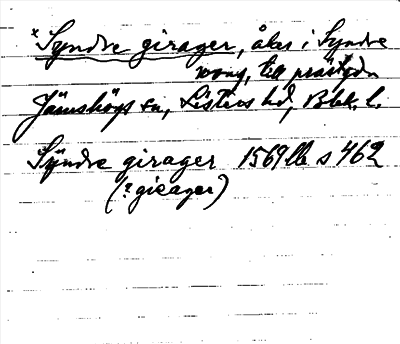 *Syndre girager, åker i Syndre
wong, till prästgdn
Jämshögs sn, Listers hd, Blek. l.
Syndre girager 1569 lb s 462
(? gieager)